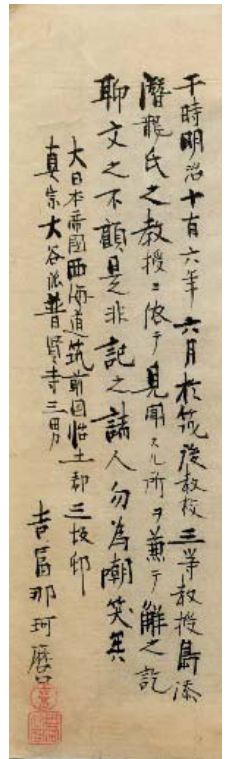 干時明治十有六年六月於筑後教校三等教授鳥添
潛龍氏之教授ニ依テ見聞スル所ヲ兼テ解之記
聊文之不顧是非記之諸人勿為嘲笑矣
大日本帝國西海道筑前国怡土郡三坂邨
真宗大谷派普賢寺三男
吉冨那珂麿